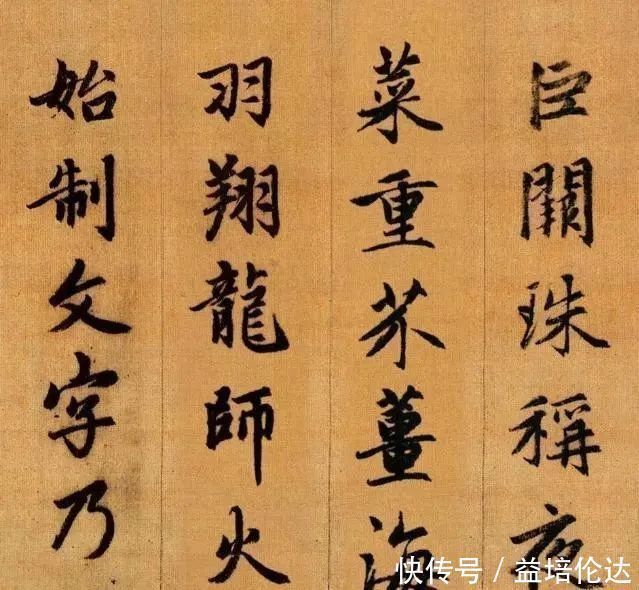 巨闕珠稱夜
菜重芥薑海
羽翔龍師火
始制文字乃
快传号／益培伦达